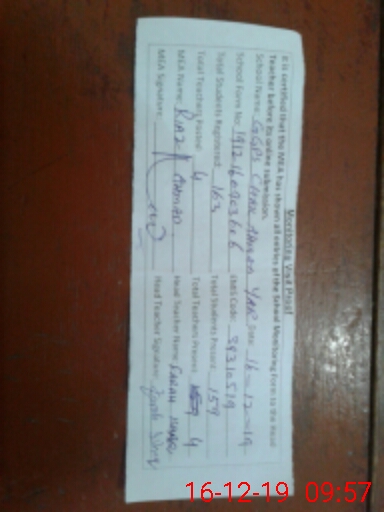 Monitoring Visit Proof
It is certified that the MEA has shown all entries of the School Monitoring Form to the Head
Teacher before its online submission.
School Name: GGPS CHAK AHMED YAR Date: 16-12-19
School Form No: EMIS Code: 39310519
Total Students Registered: 163 Total Students Present: 159
Total Teachers Posted: 4 Total Teachers Present: 4
MEA Name: RIAZ AHMAD Head Teacher Name: FARAH
MEA Signature: Head Teacher Signature:
16-12-19 09:57